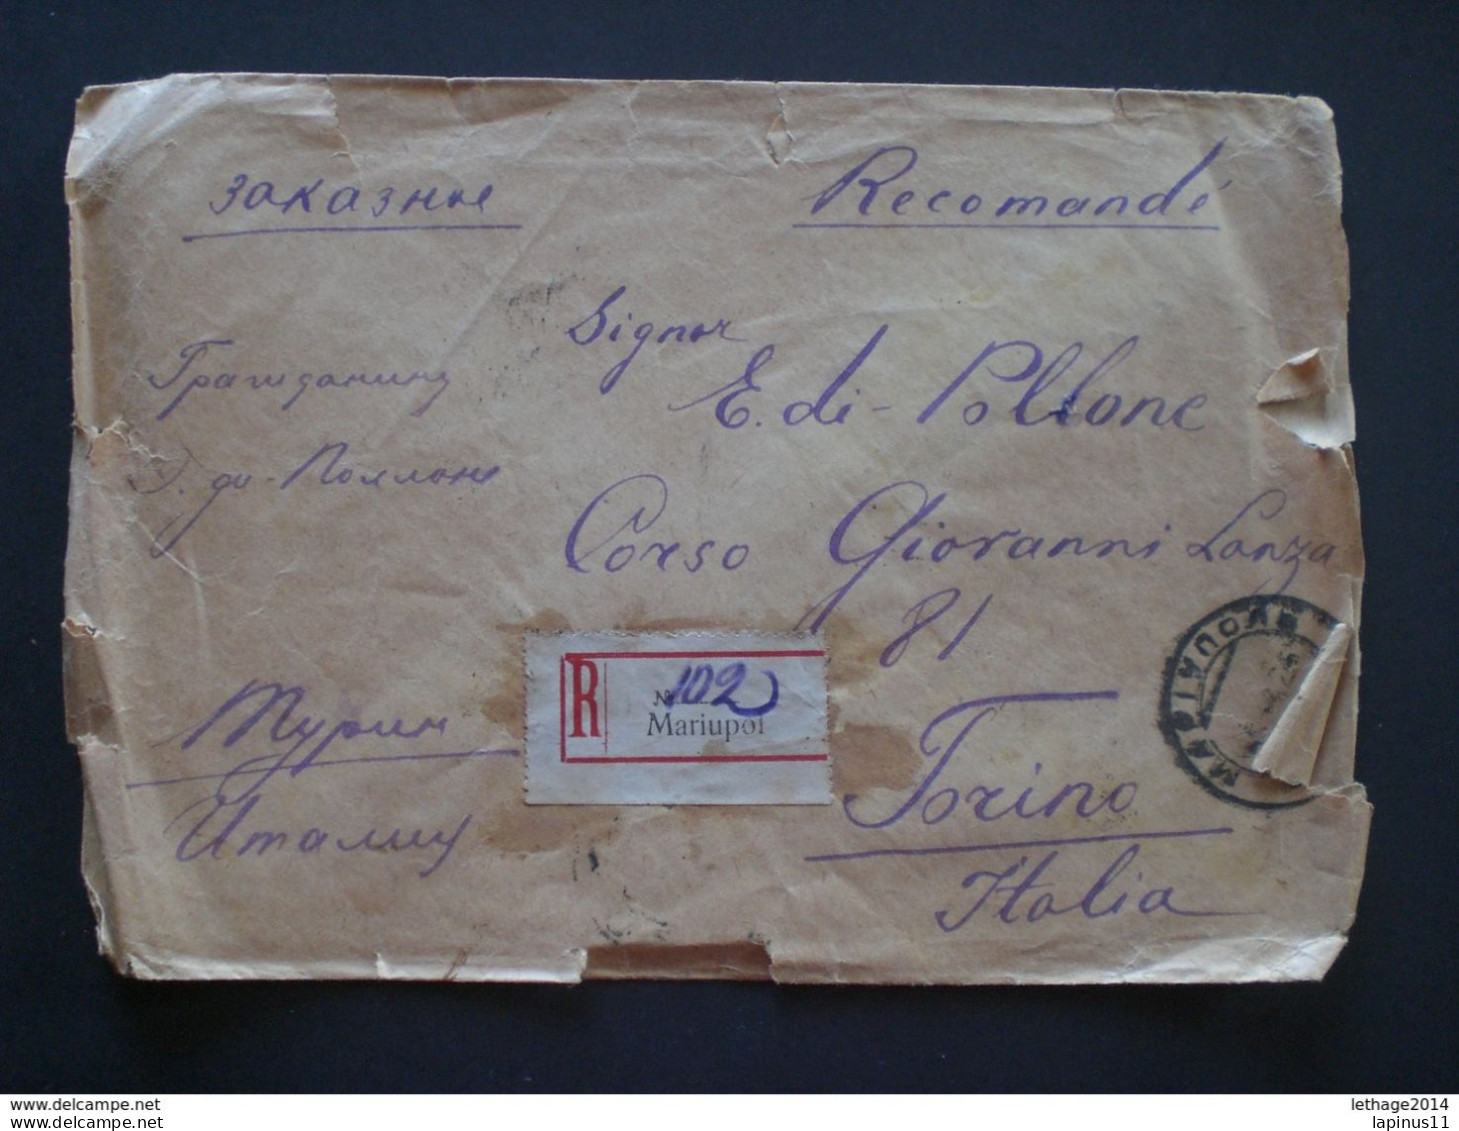 заказное
Recomandé
Signor
E. di - Pollone
Corso Giovanni Lanza
81
Torino
Italia
Гражданину
Э. ди - Поллоне
Турин
Италия
R
№ 102
Mariupol
МАРІУПОЛЬ
www.delcampe.net
www.delcampe.net
lethage2014
lapinus11